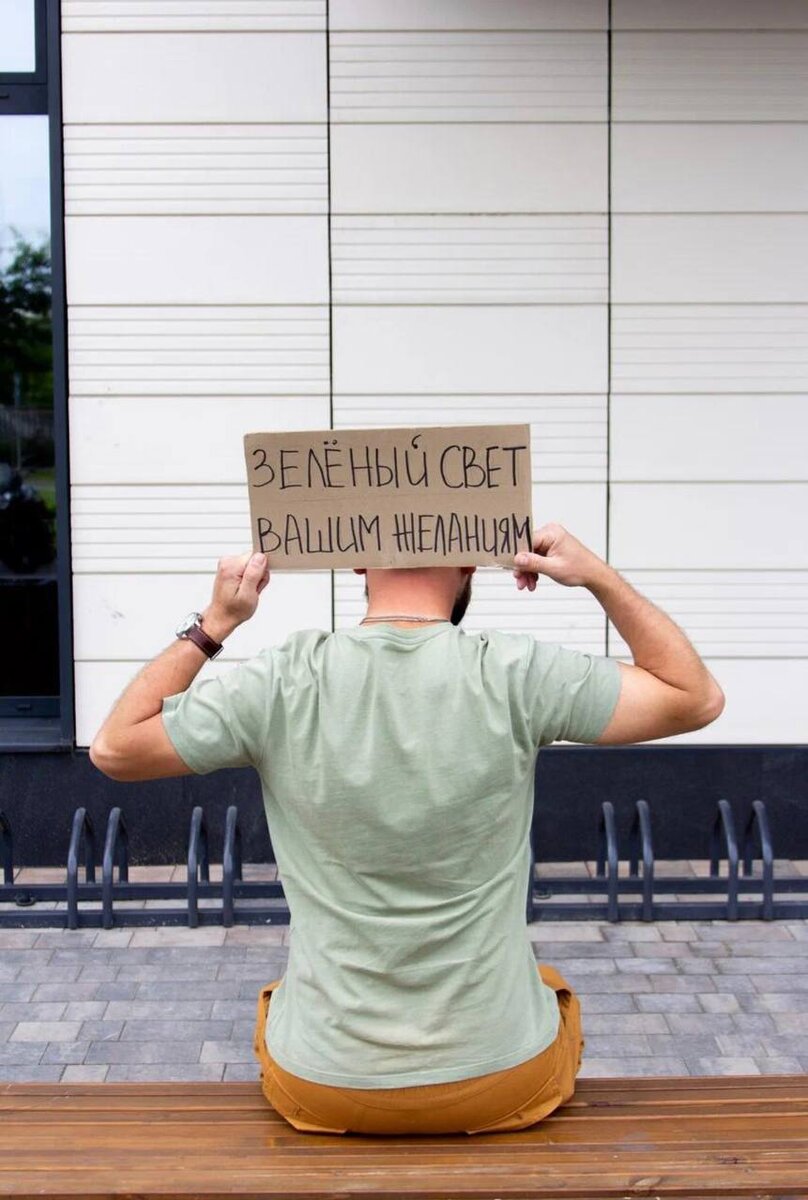 ЗЕЛЁНЫЙ СВЕТ
ВАШИМ ЖЕЛАНИЯМ